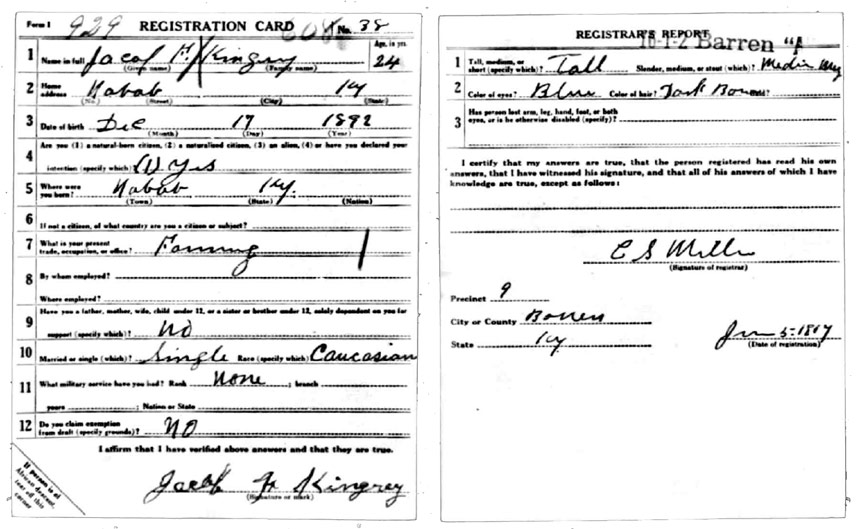 Form 1 929 REGISTRATION CARD No. 38
1 Name in full Jacob H Kingrey Age, in yrs. 24
(Given name) (Family name)
2 Home address Nabob Ky
(No.) (Street) (City) (State)
3 Date of birth Dec 17 1892
(Month) (Day) (Year)
Are you (1) a natural-born citizen, (2) a naturalized citizen, (3) an alien, (4) or have you declared your
4 intention (specify which)? (1) Yes
5 Where were you born? Nabob Ky.
(Town) (State) (Nation)
6 If not a citizen, of what country are you a citizen or subject?
7 What is your present trade, occupation, or office? Farming
8 By whom employed?
Where employed?
Have you a father, mother, wife, child under 12, or a sister or brother under 12, solely dependent on you for
9 support (specify which)? No
10 Married or single (which)? Single Race (specify which)? Caucasian
11 What military service have you had? Rank None ; branch
years ; Nation or State
12 Do you claim exemption from draft (specify grounds)? No
I affirm that I have verified above answers and that they are true.
If person is of
African descent,
tear off this
corner
Jacob H Kingrey
(Signature or mark)
REGISTRAR'S REPORT
Barren "A
1 Tall, medium, or short (specify which)? Tall Slender, medium, or stout (which)? Medium
2 Color of eyes? Blue Color of hair? Dark Brown
3 Has person lost arm, leg, hand, foot, or both eyes, or is he otherwise disabled (specify)?
I certify that my answers are true, that the person registered has read his own
answers, that I have witnessed his signature, and that all of his answers of which I have
knowledge are true, except as follows:
E S Miller
(Signature of registrar)
Precinct 9
City or County Barren
State Ky
June 5-1917
(Date of registration)